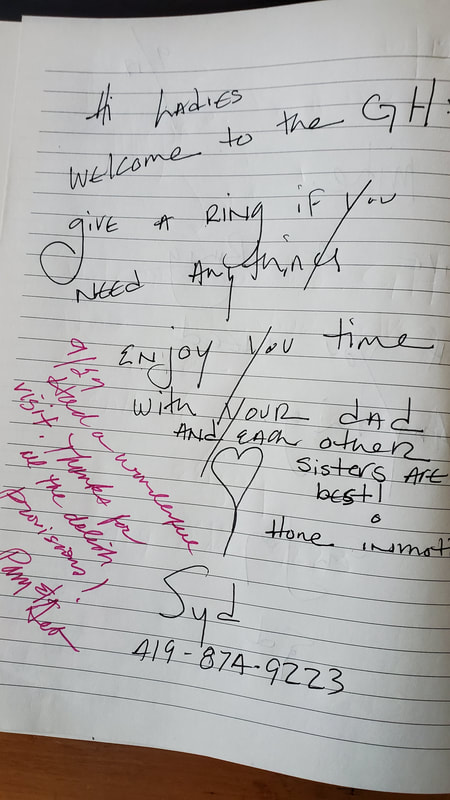 Hi LadiES
WElcome to the GH!
givE A RING iF You
NEED Anythings
ENjoy You time
with YOUR dAd
AND EACh otheR
SistERS ARE
bESt!
Home
Syd
419-874-9223
9/27
Had a wonderful
visit. Thanks for
all the delish
provisions!
Pam &